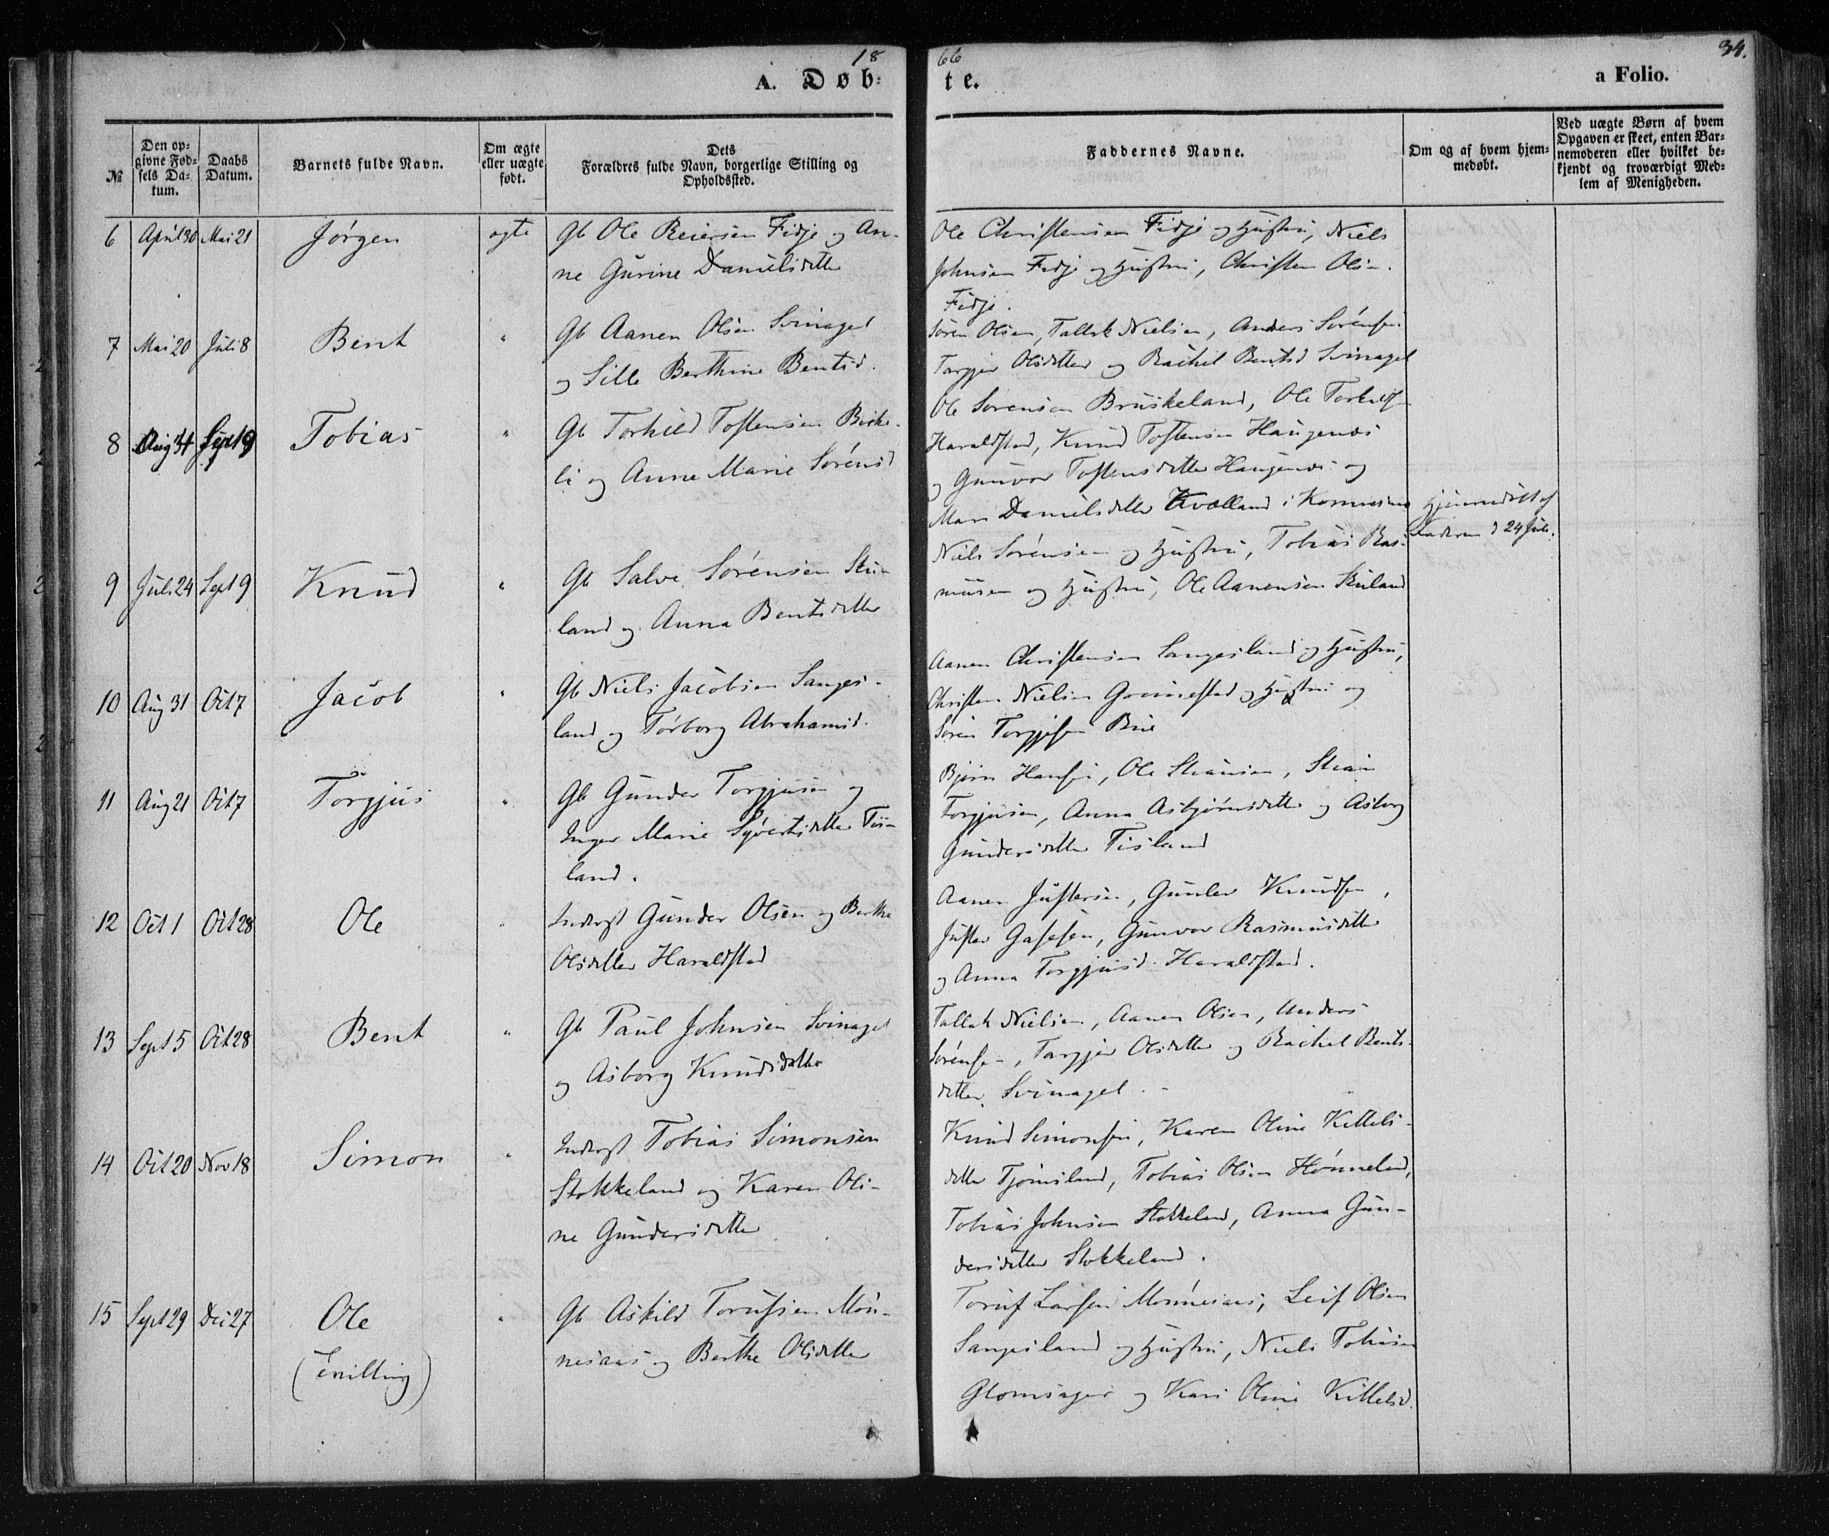 1866
34.
A. Døbte.
a Folio.
№
Den opgivne Fødsels Datum.
Daabs Datum.
Barnets fulde Navn.
Om ægte eller uægte født.
Dets Forældres fulde Navn, borgerlige Stilling og Opholdssted.
Faddernes Navne.
Om og af hvem hjemmedøbt.
Ved uægte Børn af hvem Opgaven er skeet, enten Barnemoderen eller hvilket bekjendt og troværdigt Medlem af Menigheden.
6 April 30 Mai 21 Jørgen ægte
Gb Ole Reiersen Fidje og An-
ne Gurine Danielsdatter
Ole Christensen Fidje og Hustru, Niels
Johnsen Fidje og Hustru, Christen Olsen
Fidje.
7 Mai 20 Juli 8 Bent "
Gb Aanen Olsen Svinagel
og Sille Berthine Bentsd.
Søren Olsen, Tallak Nielsen, Anders Sørensen
Torgjer Olsdatter og Rachel Bentsd Svinagel
8 Aug 31 Sept 9 Tobias "
Gb Torkild Tostensen Birke-
li og Anne Marie Sørensd
Ole Sørensen Bruskeland, Ole Torkildsen
Haraldstad, Knud Tostensen Haugenes
og Gunvor Tostensdatter Haugenes og
Mari Danielsdatter Kvælland i
9 Juli 24 Sept 9 Knud "
Gb Salve Sørensen Sku-
land og Anna Bentsdatter
Niels Sørensen og Hustru, Tobias Ras-
musen og Hustru, Ole Aanensen Skuland
Hjemmedøbt af
Faderen d 24 Juli.
10 Aug 31 Oct 7 Jacob "
Gb Niels Jacobsen Sanges-
land og Torborg Abrahamsd.
Aanen Christensen Sangesland og Hustru,
Christen Nielsen Greimestad og Hustru og
Søren Torgjusen Bue
11 Aug 21 Oct 7 Torgjus "
Gb Gunder Torgjusen og
Inger Marie Syvertsdatter Tis-
land.
Bjørn Hansen, Ole Steansen, Stean
Torgjusen, Anna Asbjørnsdatter og Asborg
Gundersdatter Tisland
12 Oct 1 Oct 28 Ole "
Inderst Gunder Olsen og Berthe
Olsdatter Haraldstad
Aanen Justersen, Gunlev Knudsen,
Juster Gasesen, Gunvor Rasmusdatter
og Anna Torgjusd. Haraldstad.
13 Sept 5 Oct 28 Bent "
Gb Paul Johnsen Svinagel
og Asborg Knudsdatter
Tallak Nielsen, Aanen Olsen, Anders
Sørensen, Torgjer Olsdatter og Rachel Bents-
datter Svinagel.
14 Oct 20 Nov 18 Simon "
Inderst Tobias Simonsen
Stokkeland og Karen Oli-
ne Gundersdatter
Knud Simonsen, Karen Oline Kittels-
datter Tjomsland, Tobias Olsen Hønneland,
Tobias Johnsen Stokkeland, Anna Gun-
dersdatter Stokkeland.
15 Sept 29 Dec 27 Ole "
(Tvilling)
Gb Askild Torufsen Mon-
nesaas og Berthe Olsdatter
Toruf Larsen Monnesaas, Leif Olsen
Sangesland og Hustru, Niels Tobiasen
Glomsager og Kari Oline Kittelsd.